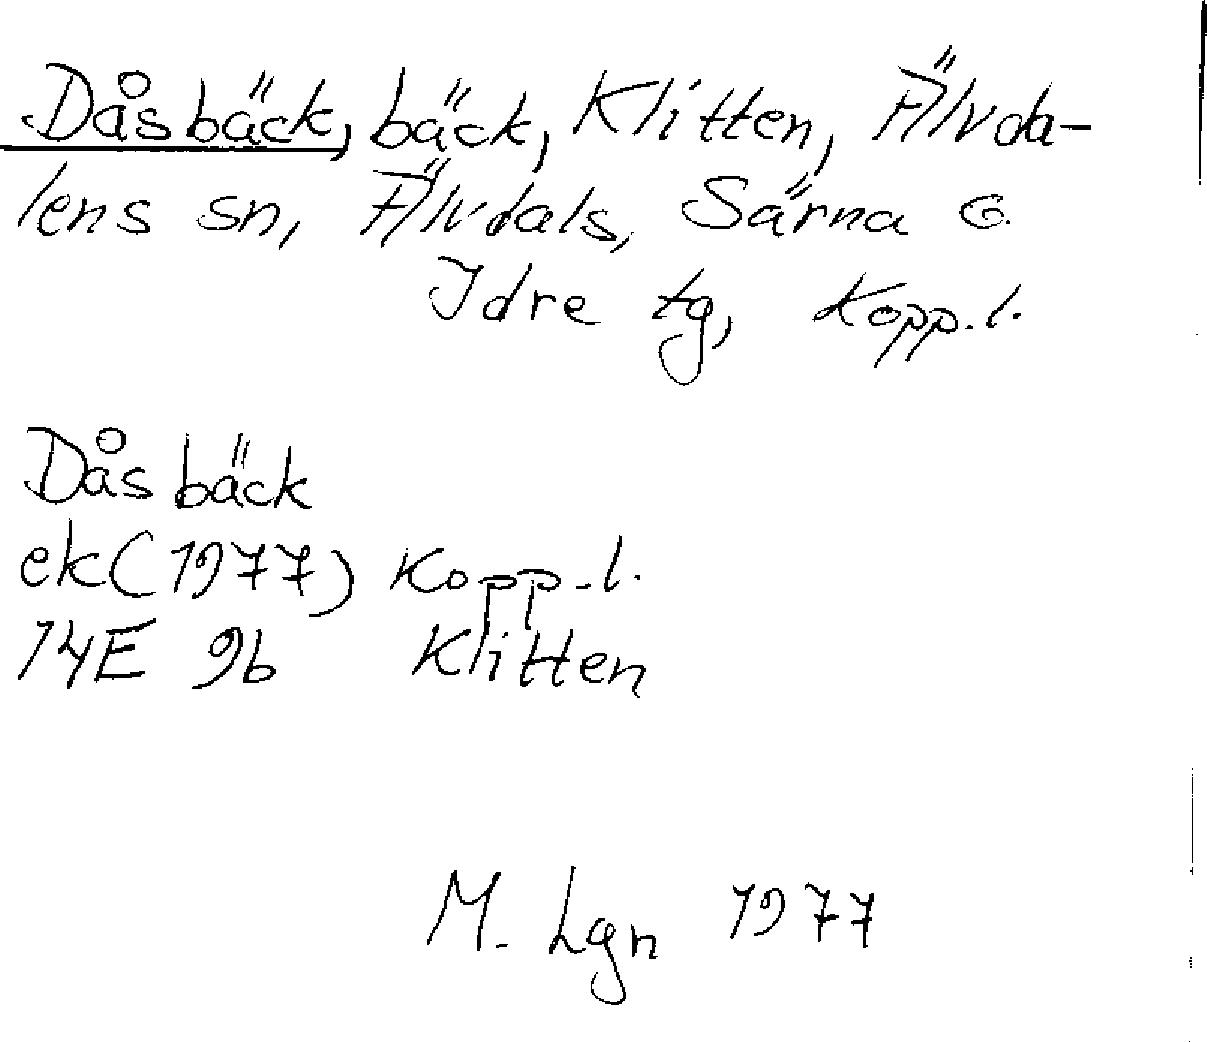 Dåsbäck, bäck, Klitten, Älvda-
lens sn, Älvdals, Särna o.
Idre tg, Kopp.l.
Dåsbäck
ek(1977) Kopp.l.
14E 9b Klitten
M. Lgn 1977